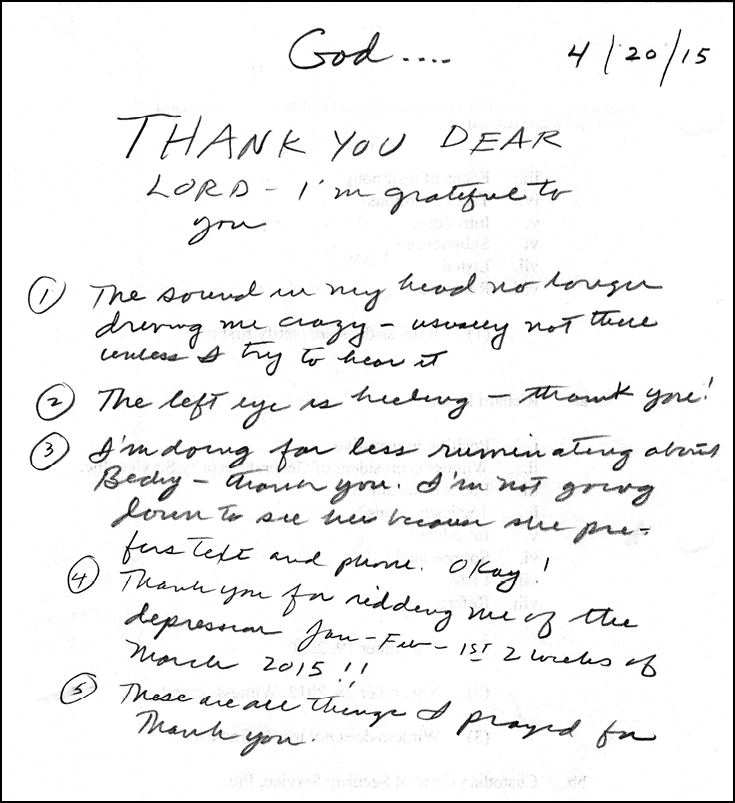 God....
4/20/15
THANK YOU DEAR
LORD - I'm grateful to
you
① The sound in my head no longer
driving me crazy - usually not there
unless I try to hear it
② The left eye is healing - thank you!
③ I'm doing far less ruminating about
Becky - thank you. I'm not going
down to see her because she pre-
fers text and phone. Okay!
④ Thank you for ridding me of the
depression Jan - Feb - 1ST 2 weeks of
March 2015!!
⑤ These are all things I prayed for
Thank you.